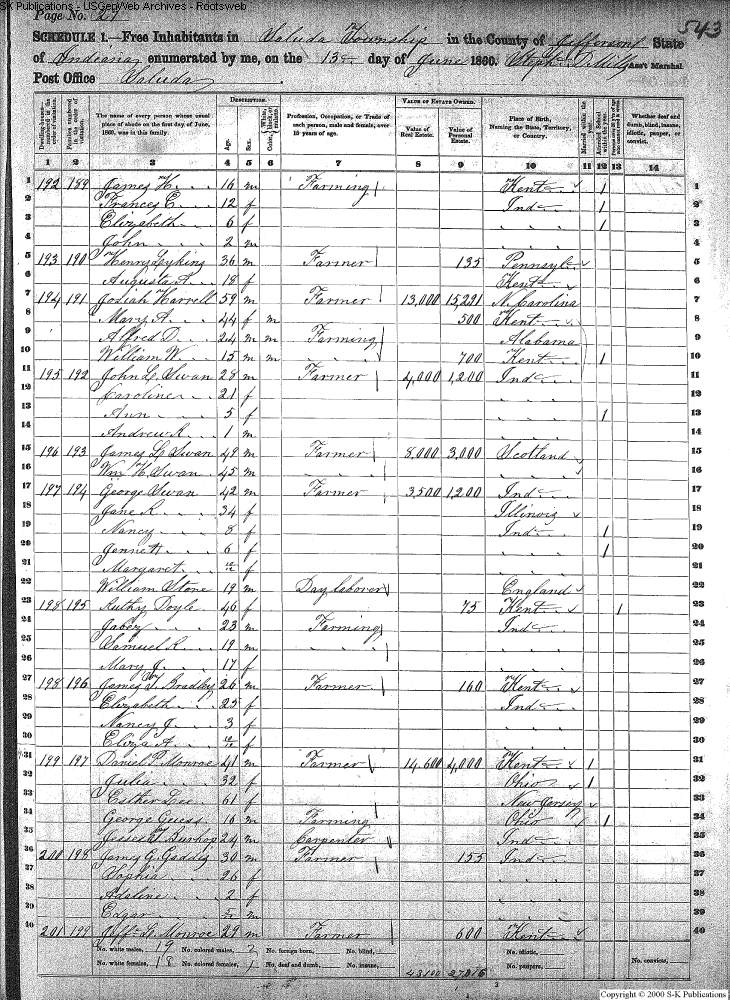 S-K Publications - USGenWeb Archives - Rootsweb
Page No. 27
543
SCHEDULE 1.—Free Inhabitants in Saluda Township in the County of Jefferson State
of Indiana enumerated by me, on the 13 day of June 1860. Ass't Marshal.
Post Office Saluda
Dwelling-houses— numbered in the order of visitation.
Families numbered in the order of visitation.
The name of every person whose usual place of abode on the first day of June, 1860, was in this family.
DESCRIPTION.
Age.
Sex.
Color, White, black, or mulatto.
Profession, Occupation, or Trade of each person, male and female, over 15 years of age.
VALUE OF ESTATE OWNED.
Value of Real Estate.
Value of Personal Estate.
Place of Birth, Naming the State, Territory, or Country.
Married within the year.
Attended School within the year.
Whether deaf and dumb, blind, insane, idiotic, pauper, or convict.
1 2 3 4 5 6 7 8 9 10 11 12 13 14
1 192 189 James H. 16 m Farming Kent 1 1
2 Frances E. 12 f Ind 1 2
3 Elizabeth 6 f 1 3
4 John 2 m 4
5 193 190 Henry Lyking 36 m Farmer 135 Pennsyl 5
6 Augusta A. 18 f Kent 6
7 194 191 Josiah Harrell 59 m Farmer 13,000 15,291 N. Carolina 7
8 Mary A. 44 f m 500 Kent 8
9 Alfred D. 24 m m Farming Alabama 9
10 William W. 15 m m 700 Kent 1 10
11 195 192 John L. Swan 28 m Farmer 4,000 1,200 Ind 11
12 Caroline 21 f 12
13 Ann 5 f 1 13
14 Andrew R. 1 m 14
15 196 193 James L. Swan 49 m Farmer 8,000 3,000 Scotland 15
16 Wm H. Swan 45 m 16
17 197 194 George Swan 42 m Farmer 3,500 1,200 Ind 17
18 Jane R. 34 f Illinois 18
19 Nancy 8 f Ind 1 19
20 Jennett 6 f 1 20
21 Margaret f 21
22 William Stone 19 m Day laborer England 22
23 198 195 Ruthy Doyle 46 f 75 Kent 1 23
24 Jabez 23 m Farming Ind 24
25 Samuel R. 19 m 25
26 Mary J. 17 f 26
27 198 196 James T. Bradley 26 m Farmer 160 Kent 27
28 Elizabeth 25 f Ind 28
29 Nancy J. 3 f 29
30 Eliza A. f 30
31 199 197 Daniel P. Monroe 41 m Farmer 14,600 4,000 Kent 1 31
32 Julia 32 f Ohio 1 32
33 Esther Lee 61 f New Jersey 33
34 George Guess 16 m Farming Ohio 1 34
35 Jesse T. Burhop 24 m Carpenter Ind 35
36 200 198 James G. Gaddis 30 m Farmer 155 Ind 36
37 Sophia 26 f 37
38 Adeline 2 f 38
39 Edgar m 39
40 201 199 Monroe 29 m Farmer 600 Kent 40
No. white males, 19 No. colored males, 2 No. foreign born, No. blind, No. idiotic,
No. white females, 18 No. colored females, 1 No. deaf and dumb, No. insane, 43100 27816 No. paupers, No. convicts,
Copyright © 2000 S-K Publications